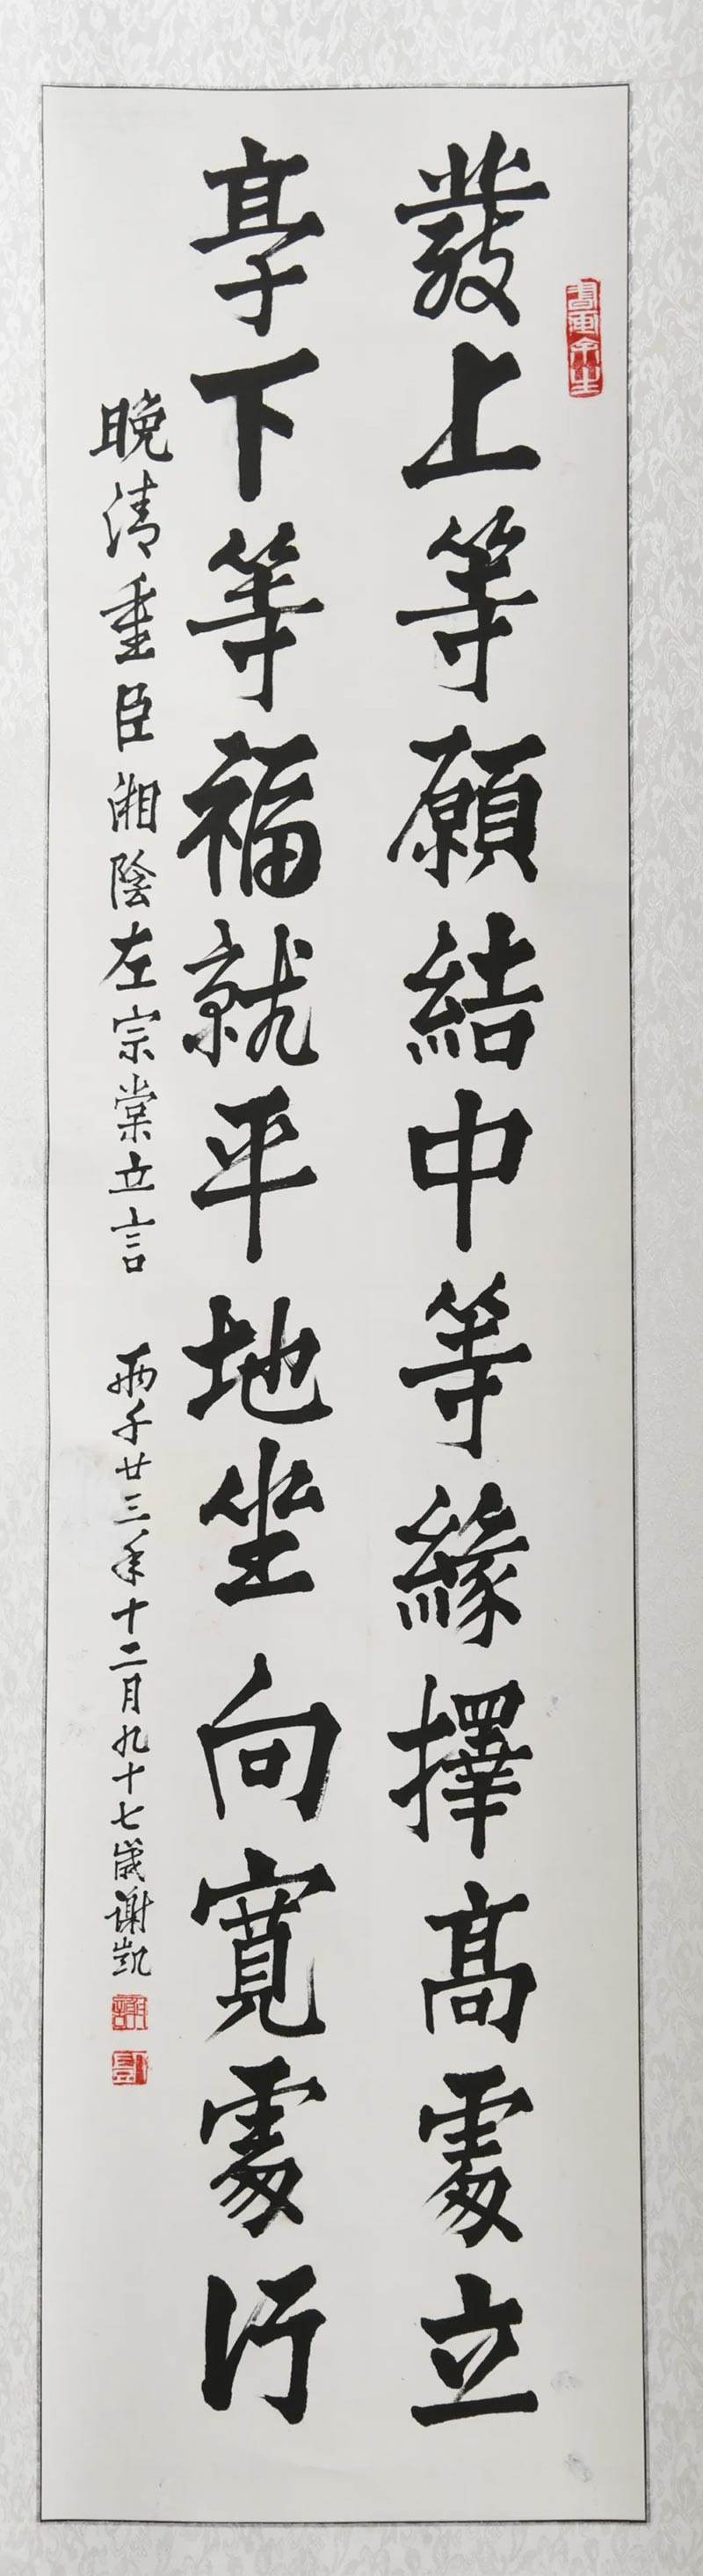 書画余生
發上等願結中等緣擇高處立
享下等福就平地坐向寬處行
晚清重臣湘陰左宗棠立言 兩千廿三年十二月九十七歲谢凯
謝
凱